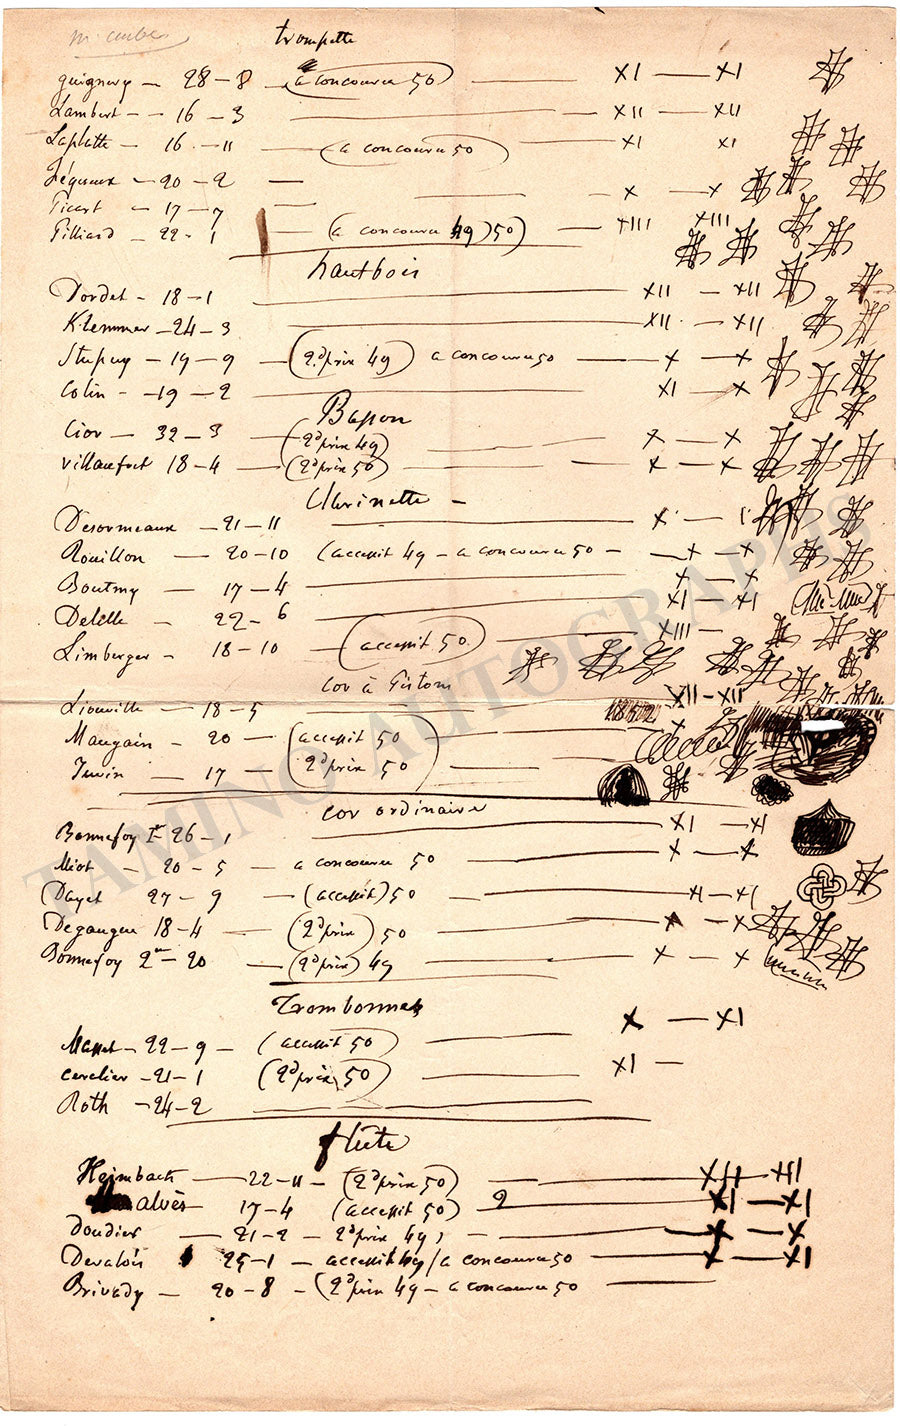 m. auber
trompette
guignery — 28 — 8 (a concouru 50) — XI — XI
Lambert — 16 — 3 — XII — XII
Laplatte — 16 — 11 — (a concouru 50) XI XI
20 — 2 —
Picart — 17 — 7 — X — X
Pilliard — 22 — 1 — (a concouru 49) 50) — XIII XIII
hautbois
Dordet — 18 — 1 — XII — XII
Klemmer — 24 — 3 — XII — XII
Stupuy — 19 — 9 — (2d prix 49) a concouru 50 — X — X
Colin — 19 — 2 — XI — X
Basson
Cior — 32 — 3 — (2d prix 49) — X — X
Villaufret 18 — 4 — (2d prix 50) — X — X
Clarinette —
Desormeaux — 21 — 11 — X
Rouillon — 20 — 10 (accessit 49 — a concouru 50 — X — X
Boutmy — 17 — 4 — X — X
Delelle — 22 — 6 — XI — XI
Limberger — 18 — 10 (accessit 50.) XIII —
cor à Pistons
Liouville — 18 — 5 — XII — XII
1852
Maugain — 20 — (accessit 50 X
— 17 — (2d prix 50)
cor ordinaire
Bonnefoy 1er 26 — 1 — XI — XI
Miot — 20 — 5 — a concouru 50 — X — X
Dayet 27 — 9 — (accessit) 50 — XI — XI
Degaugue 18 — 4 — (2d prix) 50 — X — X
Bonnefoy 2me — 20 — (2d prix) 49 — X — X
Trombonnes
X — XI
Masset — 22 — 9 — (accessit 50) —
cerclier — 21 — 1 (2d prix 50) — XI —
Roth — 24 — 2 —
flûte
Heimbach — 22 — 11 — (2d prix 50) XII — XII
alvès — 17 — 4 (accessit 50) — 9 — XI — XI
Doudiès — 21 — 2 — 2d prix 49) — X — X
Devalois 25 — 1 — accessit 49 / a concouru 50 — X — XI
Brivady — 20 — 8 — (2d prix 49 — a concouru 50 —
TAMINO AUTOGRAPHS